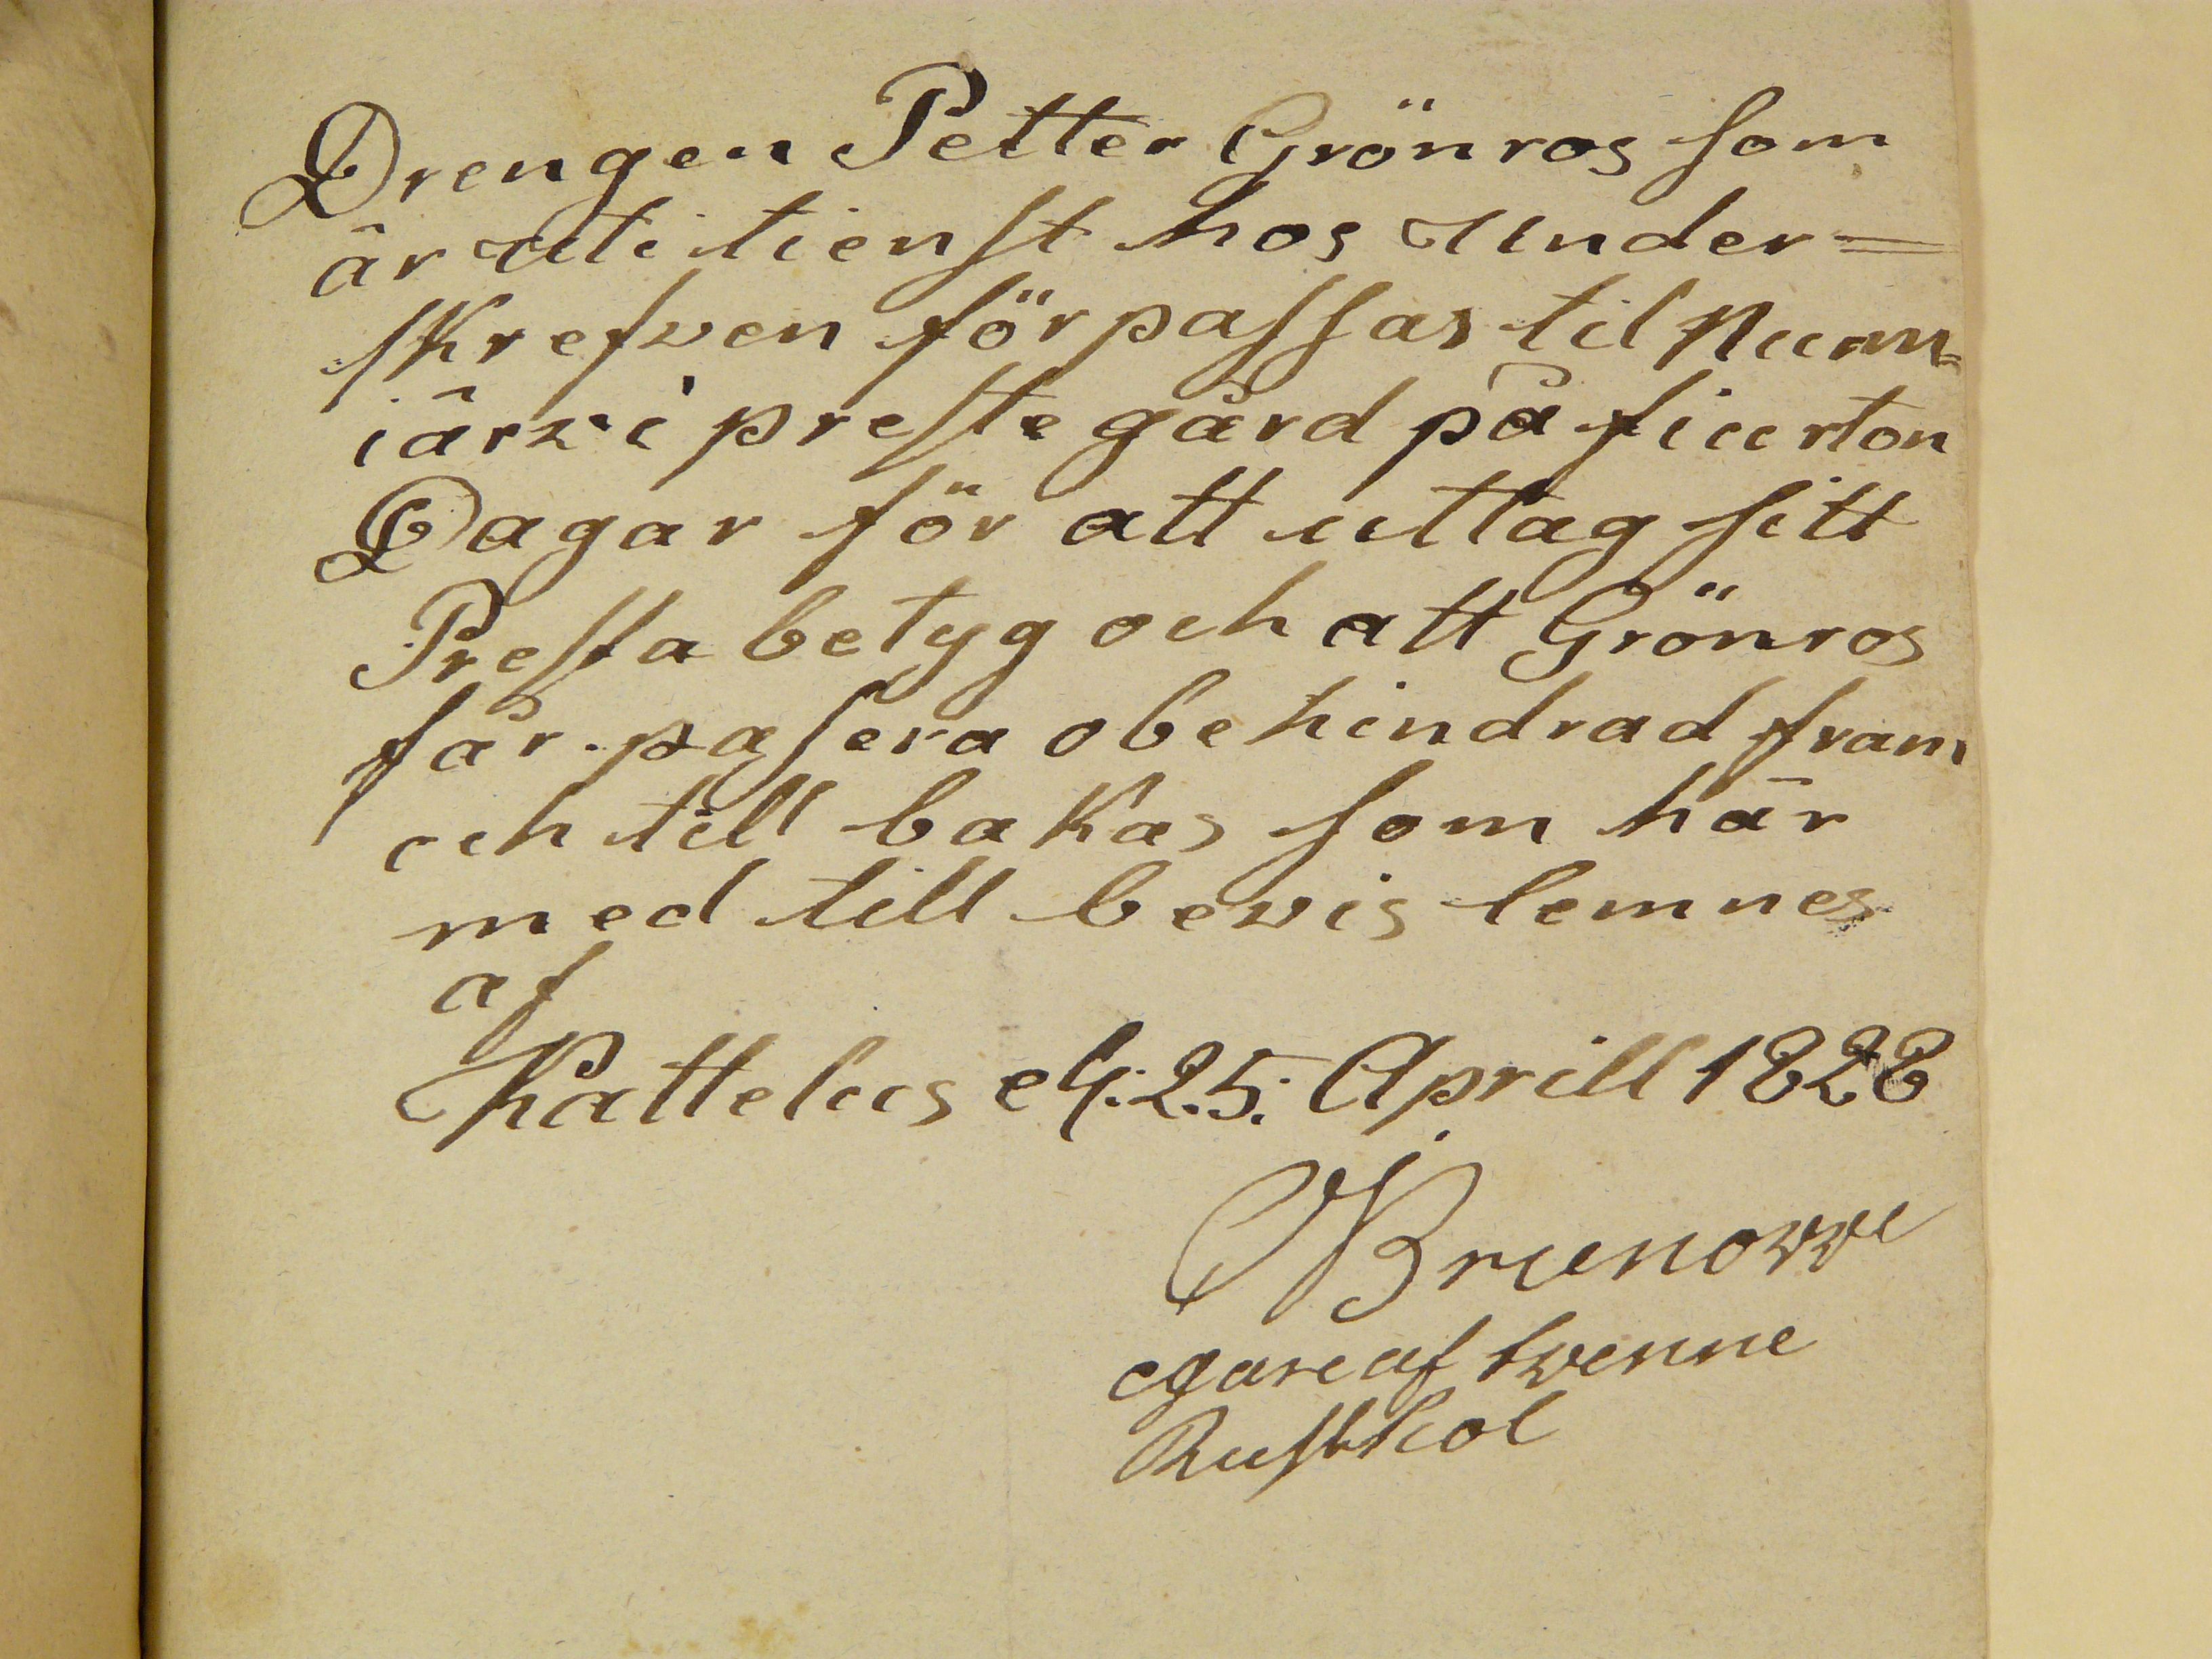 Drengen Petter Grönros som
är uti tienst hos Under=
skrefven förpassas til Num=
järvi preste gård på fiurton
Dagar för att uttag sitt
Presta betyg och att Grönros
får pasera obehindrad fram
och till bakas som här
med till bevis lemnes
af
Kattelus d. 25. Aprill 1828
Brunow
egare af twenne
Rusthol